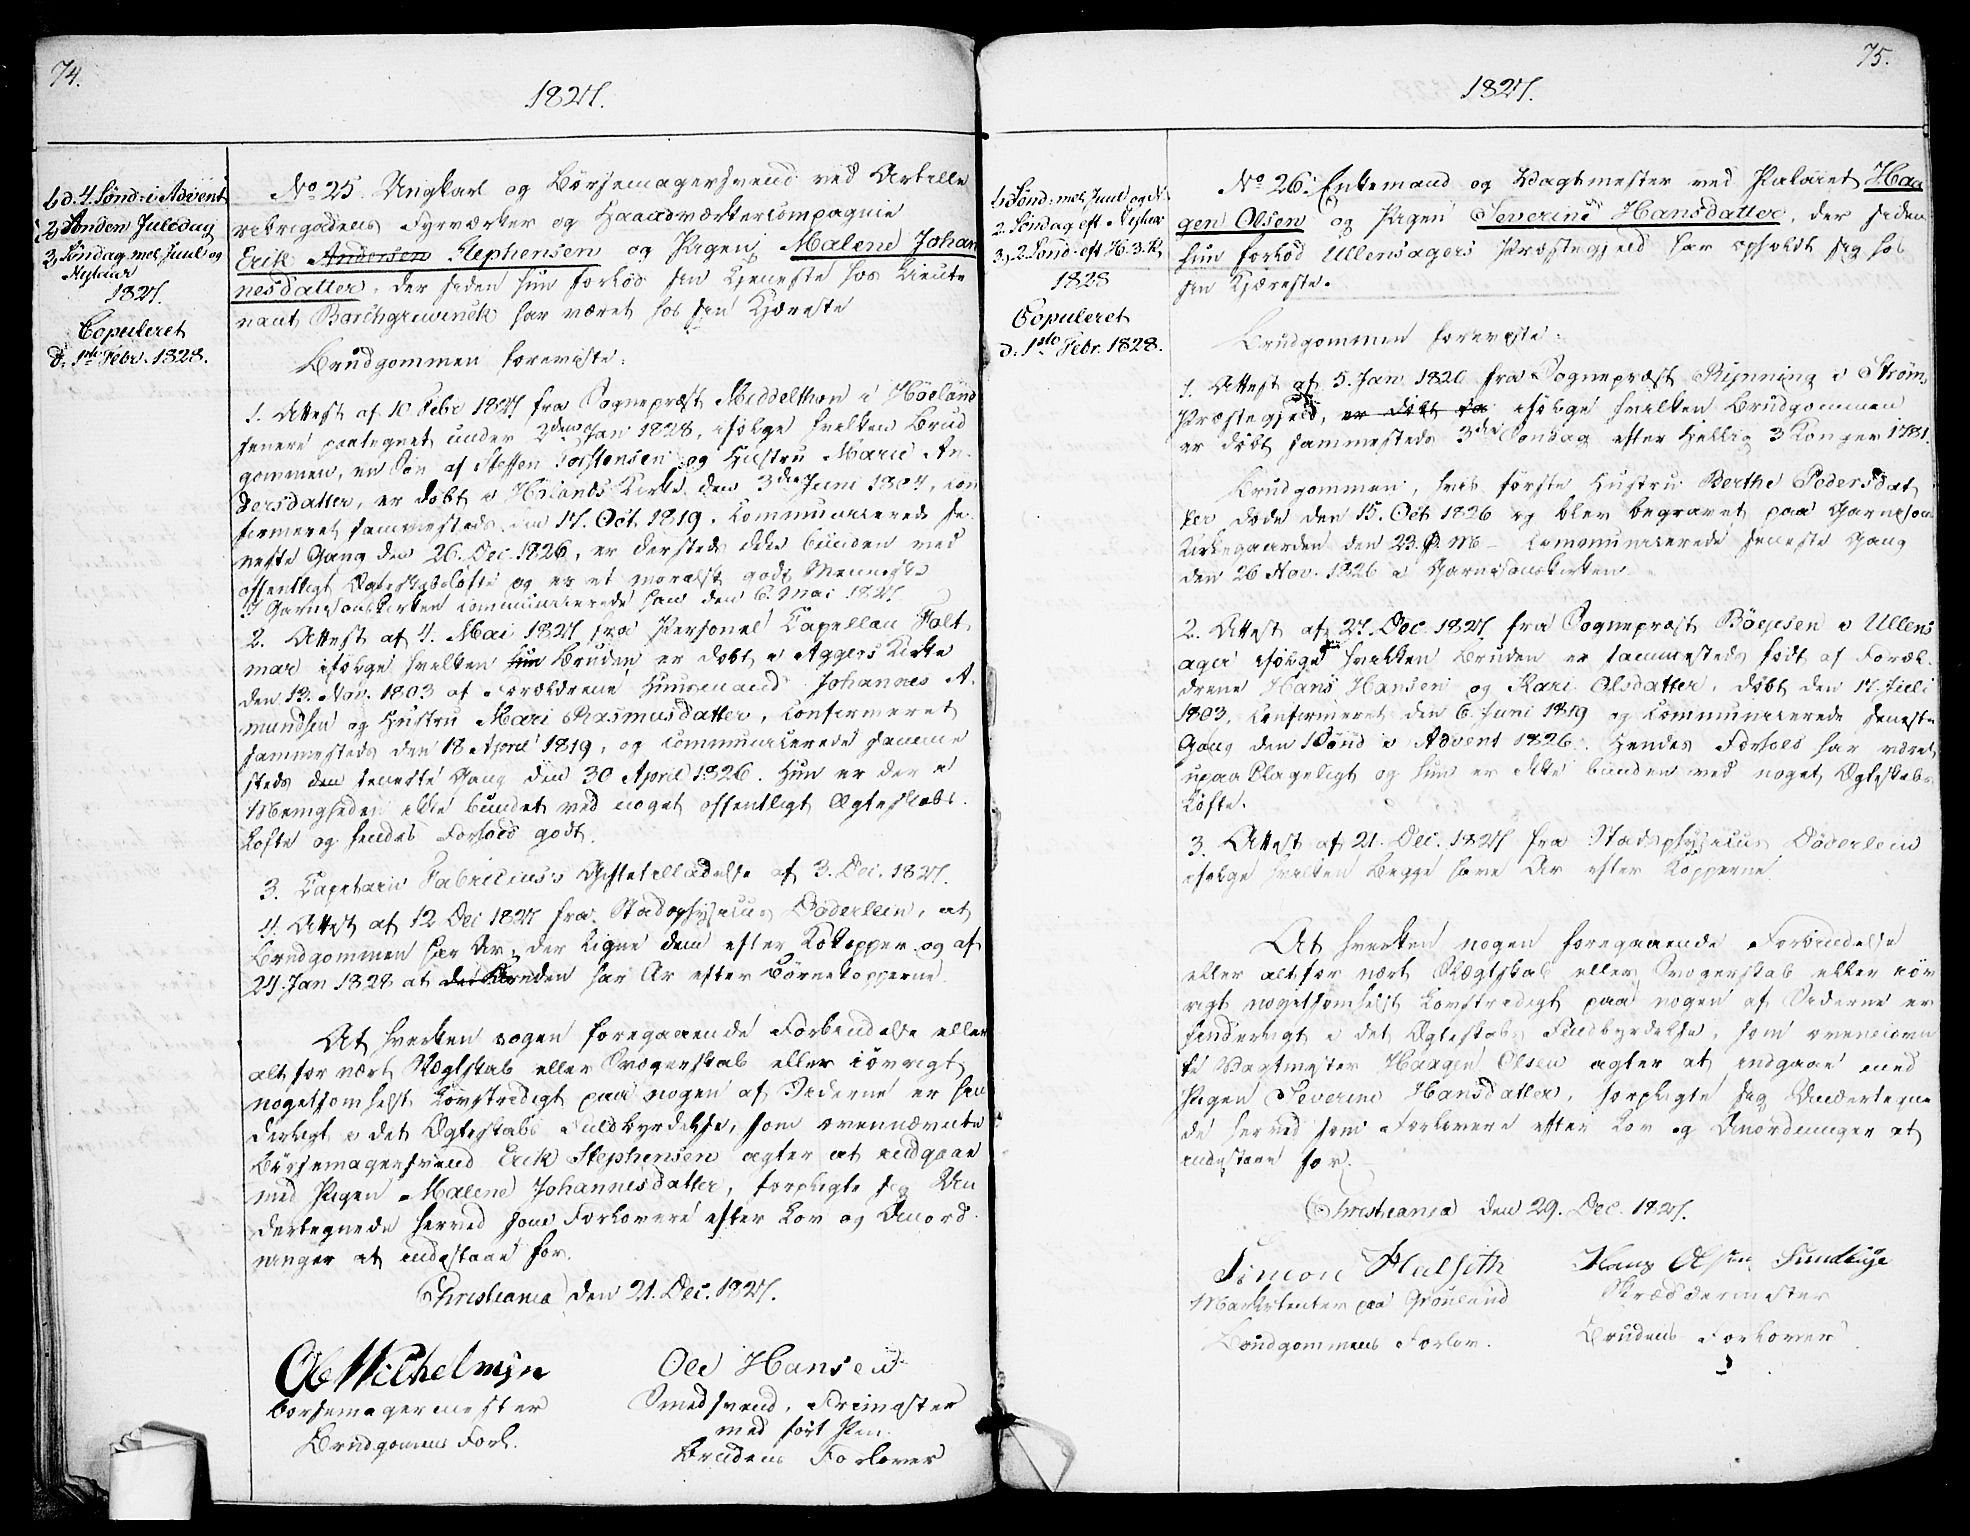 74.
1827.
1 d. 4. Sønd: i Advent
2 Anden Juledag
3 Søndag mel. Juul og
Nytaar
1827.
Copuleret
d. 1ste Febr. 1828.
No 25. Ungkarl og Børsemagersvend ved Artille
ribrigadens Fyrværker og Haandværkercompagnie
Erik Andersen Stephensen og Pigen Malene Johan
nesdatter, der siden hun forlod sin Tjeneste hos Lieute
nant har været hos sin Kjæreste
Brudgommen foreviste:
1. Attest af 10 Febr 1827 fra Sognepræst Middelthon i Høland
senere paategnet under 2den Jan 1828, ifølge hvilken Brud
gommen, en Søn af Steffen Torstensen og Hustru Marie An-
dersdatter, er døbt i Hølands Kirke den 3die Juni 1804, con
firmeret sammesteds den 17. Oct. 1819, communicerede se-
neste Gang den 26. Dec. 1826, er dersteds ikke bunden ved
offentligt Ægteskabsløfte og er et moralsk godt Menneske
I Garnisonskirken communicerede han den 6. Mai 1827.
2. Attest af 4. Mai 1827 fra Personel Capellan Holt
mar ifølge hvilken hun Bruden er døbt i Aggers Kirke
den 13. Nov. 1803 af Forældrene Huusmand Johannes A-
mundsen og Hustru Mari Rasmusdatter, confirmeret
sammesteds den 18 April 1819, og communicerede samme
steds den seneste Gang den 30 April 1826. Hun er der i
Menigheden ikke bundet ved noget offentligt Ægteskabs-
Løfte og hendes Forhold godt.
3. Capitain Fabricius's Giftetilladelse af 3. Dec. 1827.
4. Attest af 12 Dec 1827 fra Stadsphysicus Døderlein, at
Brudgommen har Ar, der ligne dem efter Kokopper og af
24. Jan 1828 at Bruden har Ar efter Børnekopperne.
At hverken nogen foregaaende Forbindelse eller
alt for nært Slægtskab eller Svogerskab eller iøvrigt
nogetsomhelst Lovstridigt paa nogen af Siderne er hin
derligt i det Ægteskabs Fuldbyrdelse, som ovennævnte
Børsemagersvend Erik Stephensen agter at indgaae
med Pigen Malene Johannesdatter, forpligte sig Un
dertegnede herved som Forlovere efter Lov og Anord
ninger at indestaae for.
Christiania den 21. Dec. 1827.
Ole Wilhelmsen
Børsemagermester
Brudgomens Forl.
Ole Hansen
Smedsvend, Frimester
med ført Pen
Brudens Forlover
75.
1827.
1. Sønd. mel. Juul og N.
2. Søndag eft. Nytaar
3. 2. Sønd. eft. H. 3. K.
1828
Copuleret
d. 1ste Febr. 1828.
No 26. Enkemand og Vagtmester ved Palaiet Haa
gen Olsen og Pigen Severine Hansdatter, der siden
hun forlod Ullensagers Præstegjeld har opholdt sig hos
sin Kjæreste.
Brudgommen foreviste:
1. Attest af 5. Jan 1820 fra Sognepræst Rynning i Strøms
Præstegjeld, er døbt ifølge hvilken Brudgommen
er døbt sammesteds 3die Søndag efter Hellig 3 Konger 1781.
Brudgommen, hvis første Hustru Berthe Pedersdat
ter døde den 15. Oct 1826 og blev begravet paa Garnisons
Kirkegaarden den 23. s. M. communicerede seneste Gang
den 26 Nov. 1826 i Garnisonskirken
2. Attest af 27. Dec. 1827 fra Sognepræst i Ullens
ager ifølge hvilken Bruden er sammesteds født af Foræl-
drene Hans Hansen og Kari Olsdatter, døbt den 17. Juli
1803, confirmeret den 6. Juni 1819 og communicerede seneste
Gang den 1 Sønd i Advent 1826. Hendes Forhold har været
upaaklageligt og hun er ikke bunden ved noget Ægteskabs
Løfte.
3. Attest af 21. Dec. 1827 fra Stadsphysicus Døderlein
ifølge hvilken Begge have Ar efter Kopperne.
At hverken nogen foregaaende Forbindelse
eller alt for nært Slægtskab eller Svogerskab eller iøv
rigt nogetsomhelst Lovstridigt paa nogen af Siderne er
hinderligt i det Ægteskabs Fuldbyrdelse, som ovennævn
te Vagtmester Haagen Olsen agter at indgaae med
Pigen Severine Hansdatter, forpligte sig Undertegne
de herved som Forlovere efter Lov og Anordninger at
indestaae for.
Christiania den 29. Dec. 1827.
Simon Hulseth
Marketenter paa Grønland
Brudgommens Forlov.
Hans Olsen Sundbye
Skræddermester
Brudens Forlover